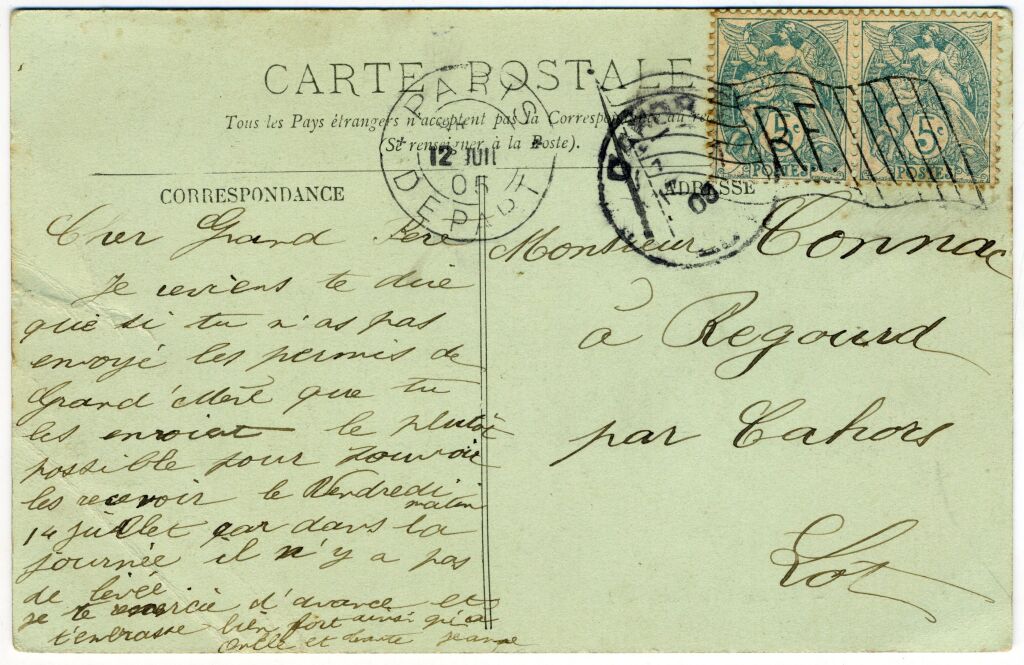 CARTE POSTALE
Tous les Pays étrangers n'acceptent pas la Correspondance au
(Se renseigner à la Poste).
PARIS
12 JUIL
05
DEPART
CAHORS
05
RF
5c 5c
POSTES POSTES
CORRESPONDANCE
ADRESSE
Cher Grand Père
Je reviens te dire
que si tu n'as pas
envoyé les permis de
Grand'Mère que tu
les envoient le plutôt
possible pour pouvoir
les recevoir le Vendredi
matin
14 Juillet car dans la
journée il n'y a pas
de levée
je te remercie d'avance et
t'embrasse bien fort ainsi qu'à
Oncle et tante Jeanne
Monsieur Tonnac
à Regourd
par Cahors
Lot